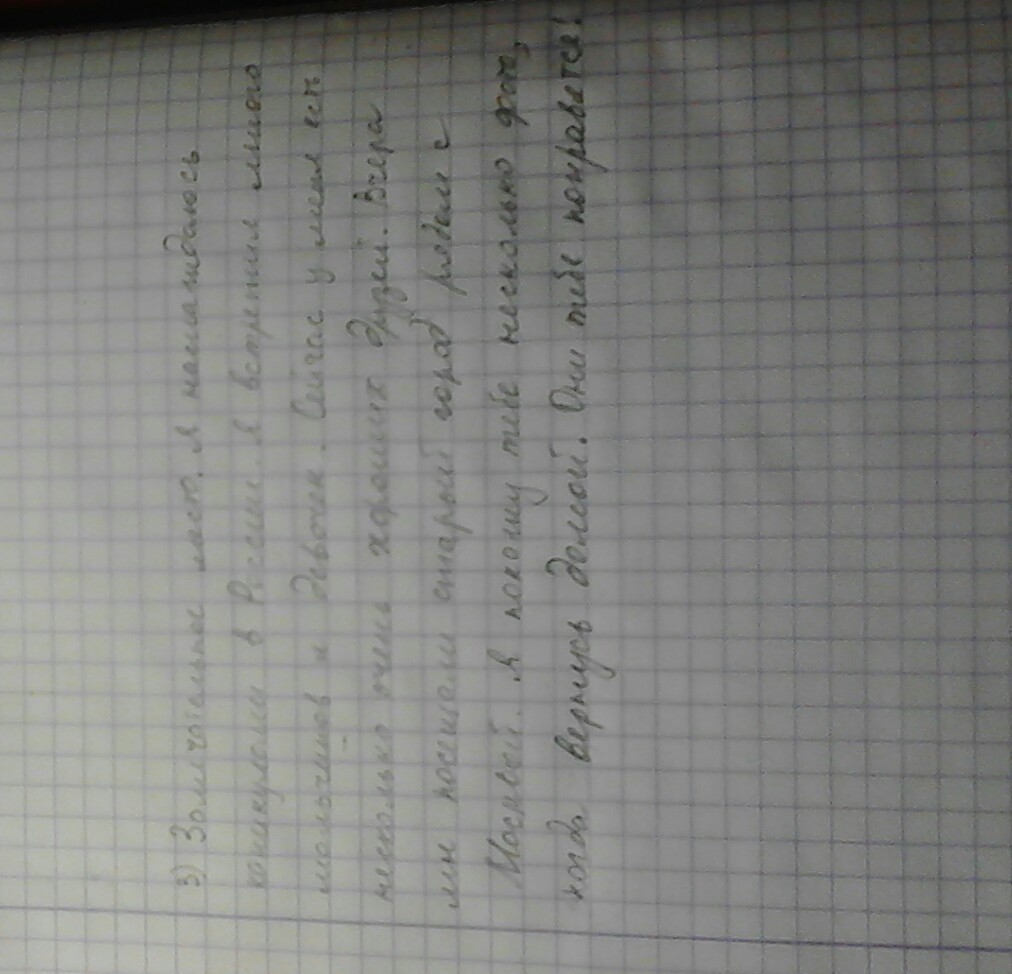 3) Замечательное место. Я наслаждаюсь
каникулами в России. Я встретил много
мальчиков и девочек. Сейчас у меня есть
несколько очень хороших друзей. Вчера
мы посещали старый город рядом с
Москвой. Я покажу тебе несколько фото,
когда вернусь домой. Они тебе понравятся!